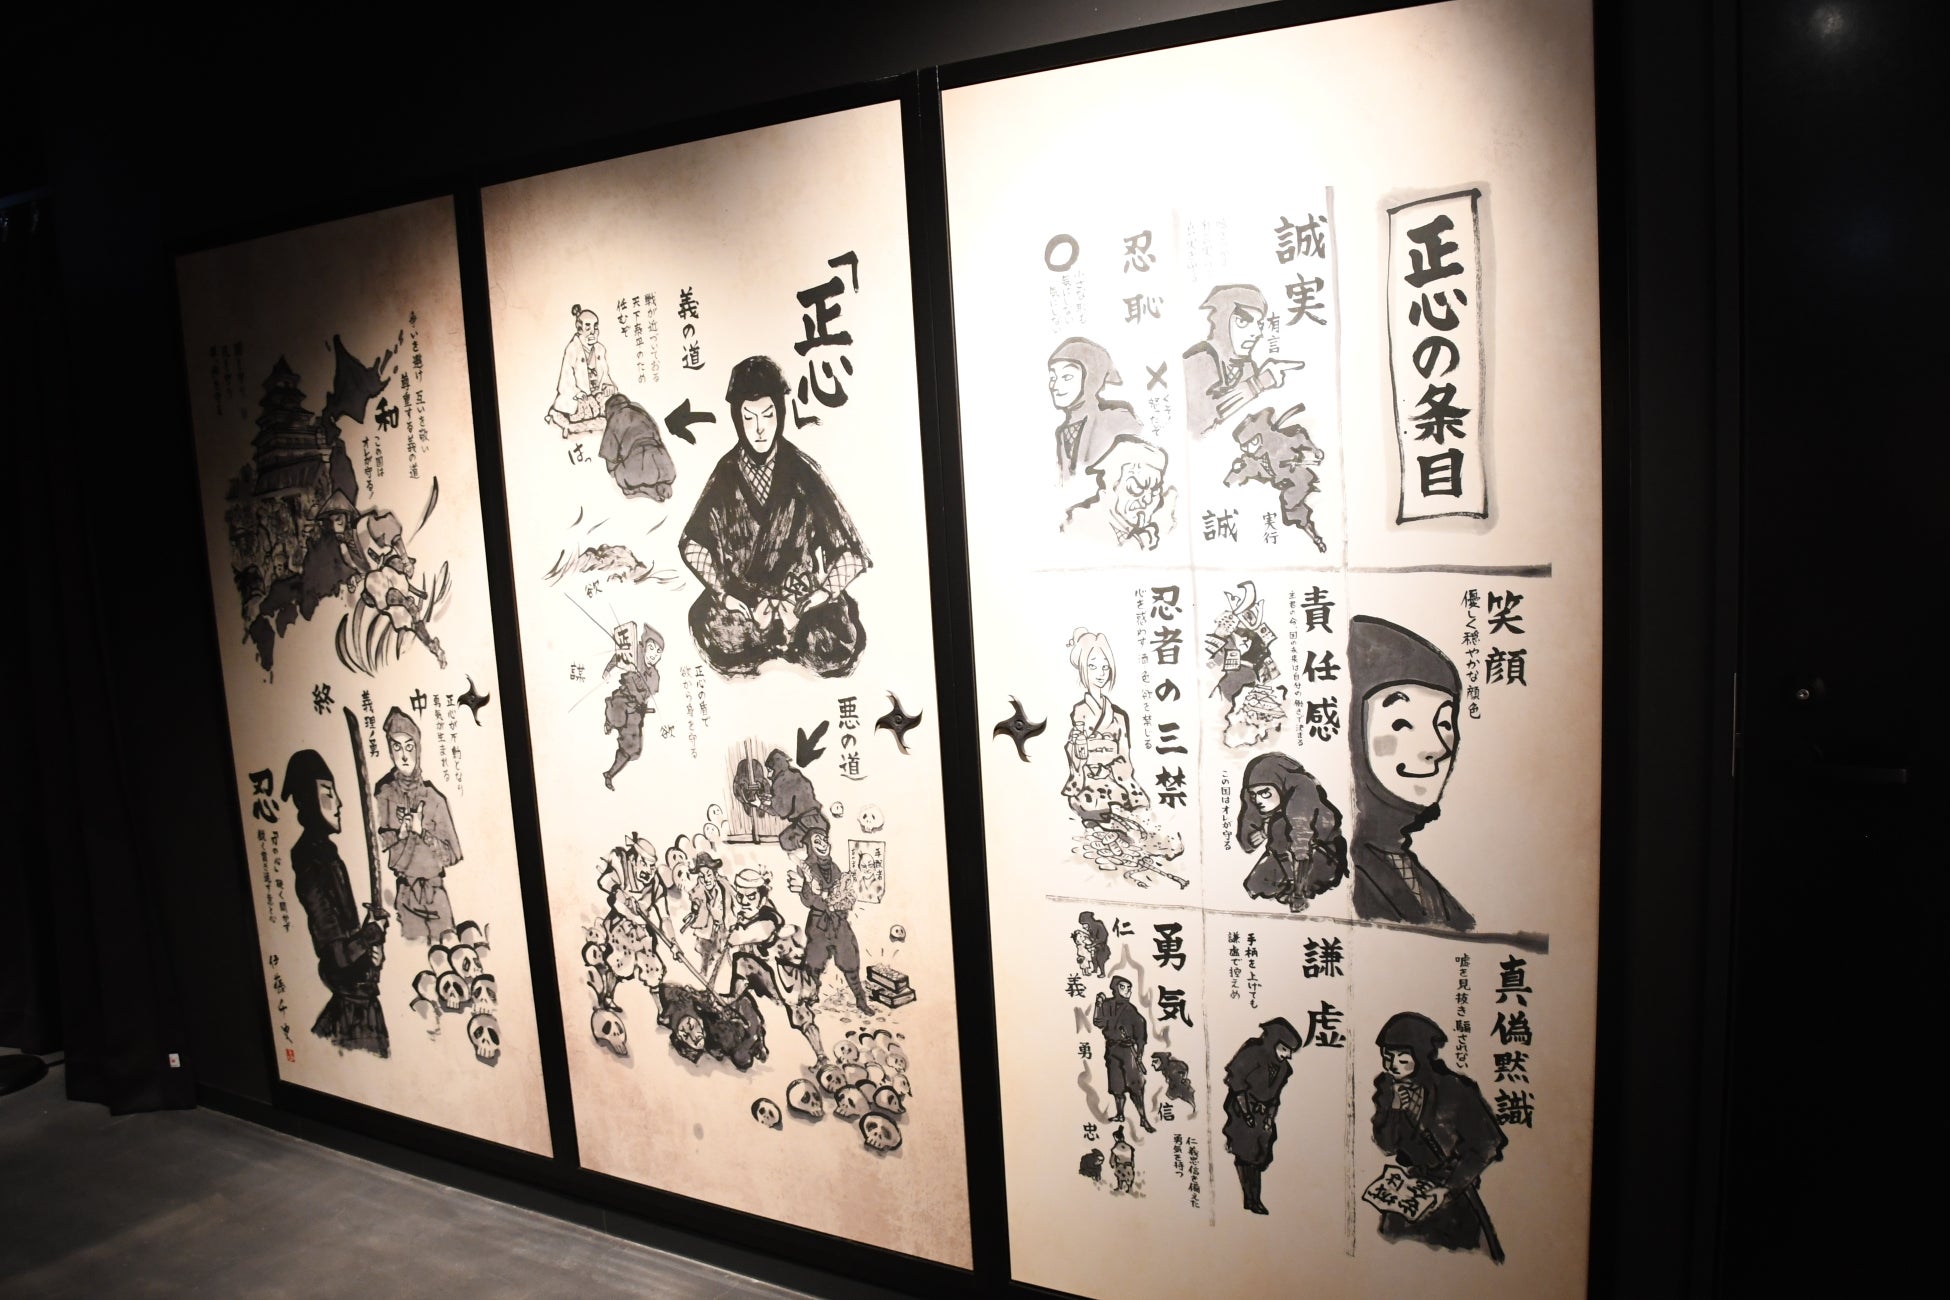 正心の条目
誠実
有言
実行
誠
忍恥
笑顔
優しく穏やかな顔色
責任感
主君の命、国の未来は自分の働きで決まる
この国はオレが守る
忍者の三禁
心を惑わす酒色欲を禁じる
真偽黙識
嘘を見抜き騙されない
謙虚
手柄を上げても
謙虚で控えめ
勇気
仁
義
勇
信
忠
仁義忠信を備えた
勇気を持つ
「正心」
義の道
戦が近づいておる
天下泰平のため
任むぞ
はっ
欲
正心
謀
欲
正心の盾で
欲から身を守る
悪の道
争いを避け 互いを敬い
尊重する義の道
和
この国は
オレが守る!
中
正心が不動となり
勇気が生まれる
義理ノ勇
終
忍
「刃の心」 堅く鋭く
伊藤千史